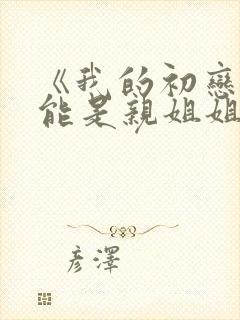 《我的初戀
能是親姐姐
彦澤